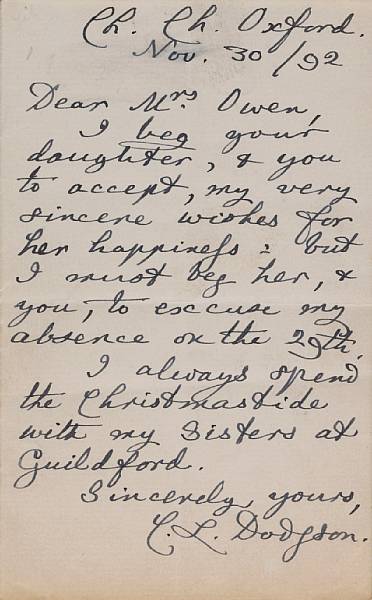 Ch. Ch. Oxford.
Nov. 30/92
Dear Mrs Owen,
I beg your
daughter, & you
to accept, my very
sincere wishes for
her happiness: but
I must beg her, &
you, to excuse my
absence on the 29th.
I always spend
the Christmastide
with my Sisters at
Guildford.
Sincerely yours,
C. L. Dodgson.